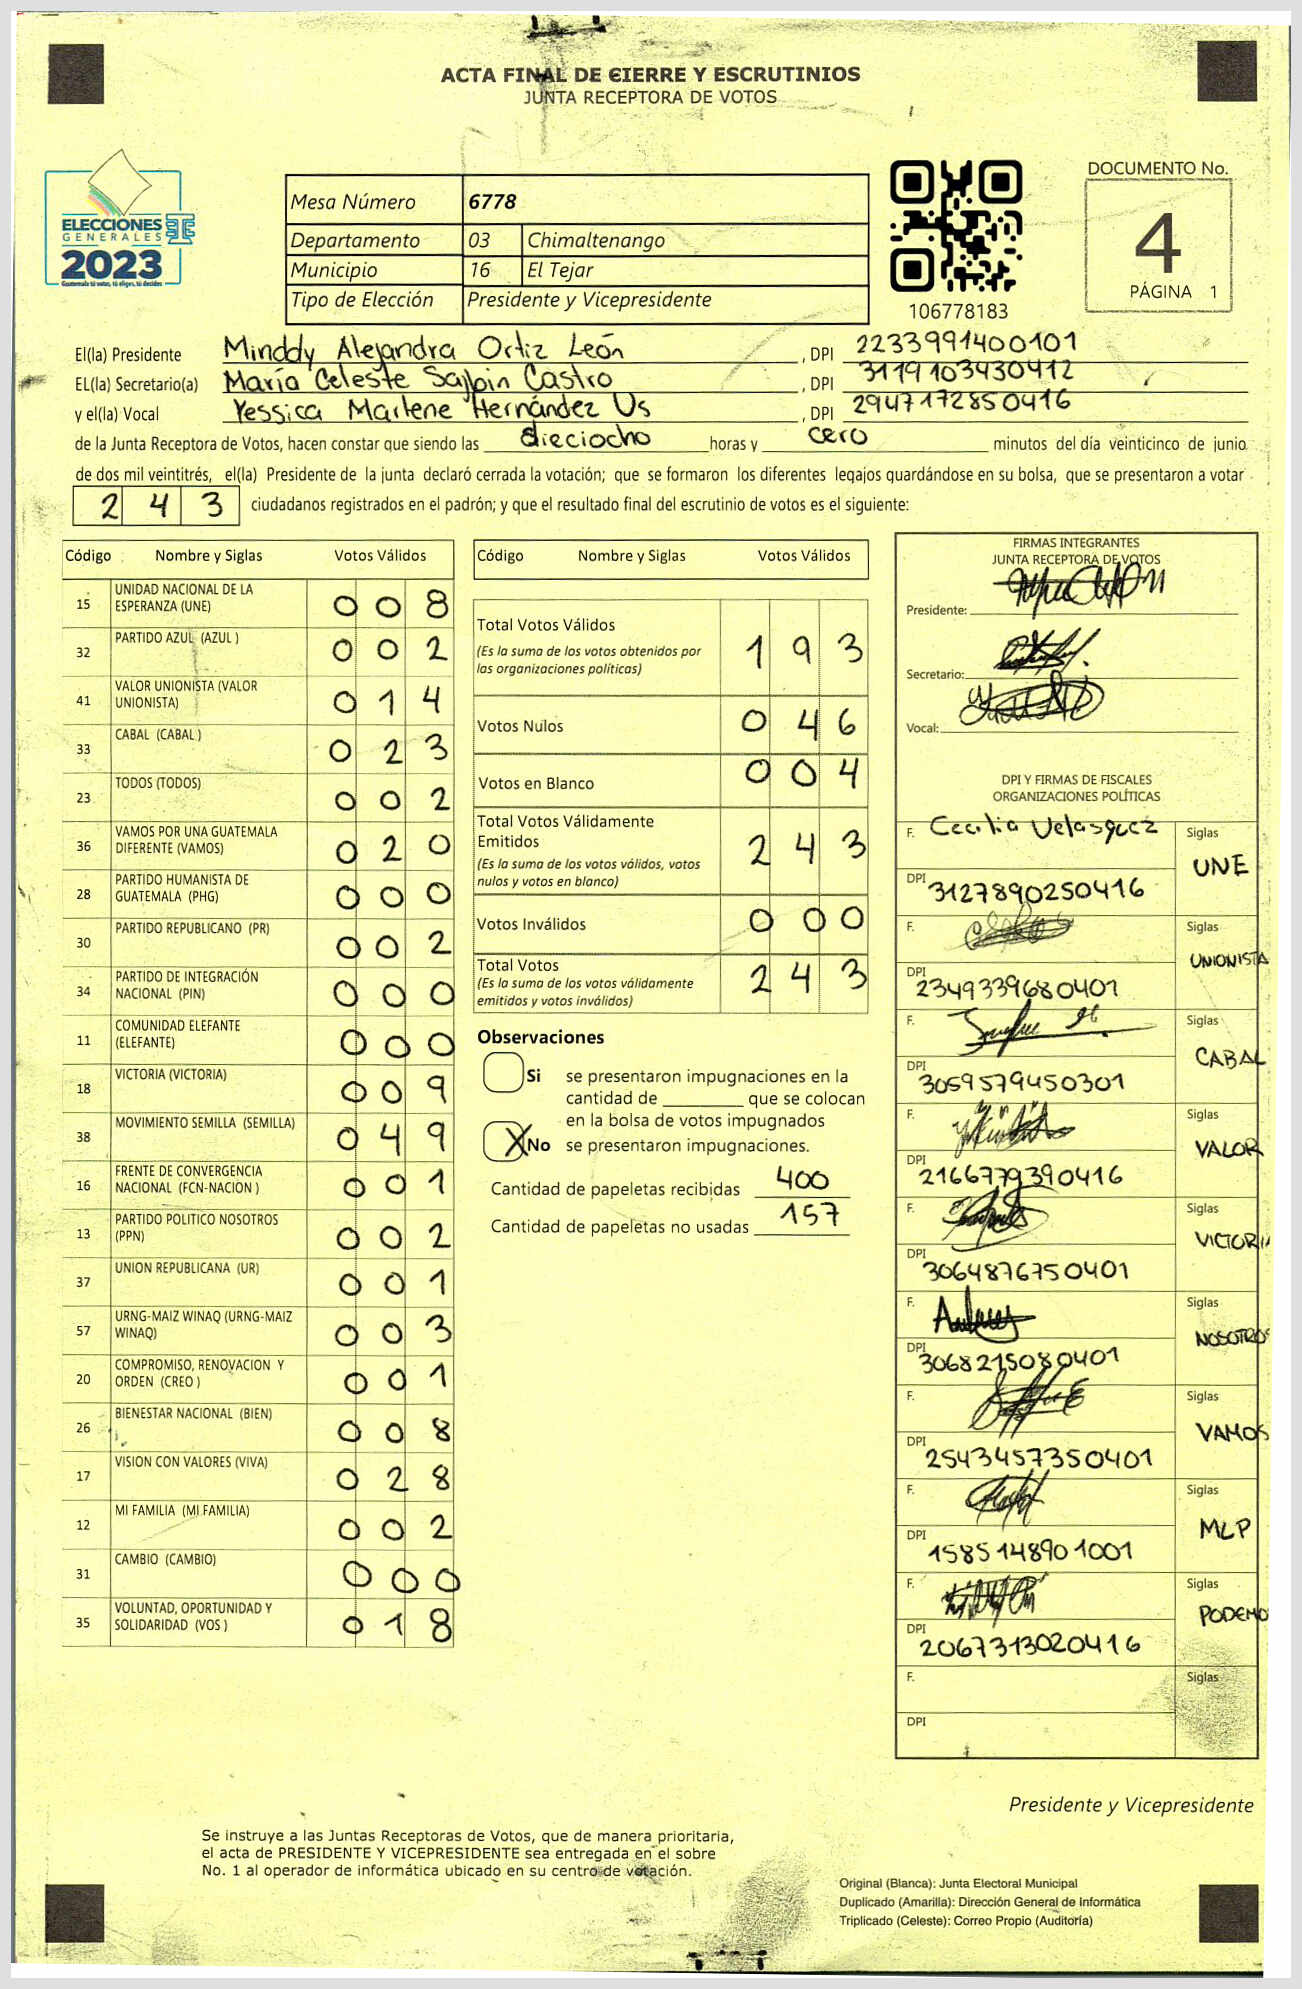 ACTA FINAL DE CIERRE Y ESCRUTINIOS
JUNTA RECEPTORA DE VOTOS
ELECCIONES
GENERALES
2023
Guatemala tú votas, tú eliges, tú decides
Mesa Número 6778
Departamento 03 Chimaltenango
Municipio 16 El Tejar
Tipo de Elección Presidente y Vicepresidente
106778183
DOCUMENTO No.
4
PÁGINA 1
El(la) Presidente Minddy Alejandra Ortiz León , DPI 2233991400101
EL(la) Secretario(a) María Celeste Sajpin Castro , DPI 3119103430412
y el(la) Vocal Yessica Marlene Hernández Us , DPI 2947172850416
de la Junta Receptora de Votos, hacen constar que siendo las dieciocho horas y cero minutos del día veinticinco de junio
de dos mil veintitrés, el(la) Presidente de la junta declaró cerrada la votación; que se formaron los diferentes legajos guardándose en su bolsa, que se presentaron a votar
243 ciudadanos registrados en el padrón; y que el resultado final del escrutinio de votos es el siguiente:
Código Nombre y Siglas Votos Válidos
15 UNIDAD NACIONAL DE LA ESPERANZA (UNE) 008
32 PARTIDO AZUL (AZUL ) 002
41 VALOR UNIONISTA (VALOR UNIONISTA) 014
33 CABAL (CABAL ) 023
23 TODOS (TODOS) 002
36 VAMOS POR UNA GUATEMALA DIFERENTE (VAMOS) 020
28 PARTIDO HUMANISTA DE GUATEMALA (PHG) 000
30 PARTIDO REPUBLICANO (PR) 002
34 PARTIDO DE INTEGRACIÓN NACIONAL (PIN) 000
11 COMUNIDAD ELEFANTE (ELEFANTE) 000
18 VICTORIA (VICTORIA) 009
38 MOVIMIENTO SEMILLA (SEMILLA) 049
16 FRENTE DE CONVERGENCIA NACIONAL (FCN-NACION ) 001
13 PARTIDO POLITICO NOSOTROS (PPN) 002
37 UNION REPUBLICANA (UR) 001
57 URNG-MAIZ WINAQ (URNG-MAIZ WINAQ) 003
20 COMPROMISO, RENOVACION Y ORDEN (CREO ) 001
26 BIENESTAR NACIONAL (BIEN) 008
17 VISION CON VALORES (VIVA) 028
12 MI FAMILIA (MI FAMILIA) 002
31 CAMBIO (CAMBIO) 000
35 VOLUNTAD, OPORTUNIDAD Y SOLIDARIDAD (VOS ) 018
Código Nombre y Siglas Votos Válidos
Total Votos Válidos 193
(Es la suma de los votos obtenidos por
las organizaciones políticas)
Votos Nulos 046
Votos en Blanco 004
Total Votos Válidamente
Emitidos 243
(Es la suma de los votos válidos, votos
nulos y votos en blanco)
Votos Inválidos 000
Total Votos 243
(Es la suma de los votos válidamente
emitidos y votos inválidos)
Observaciones
Si se presentaron impugnaciones en la
cantidad de que se colocan
en la bolsa de votos impugnados
X No se presentaron impugnaciones.
Cantidad de papeletas recibidas 400
Cantidad de papeletas no usadas 157
FIRMAS INTEGRANTES
JUNTA RECEPTORA DE VOTOS
Presidente:
Secretario:
Vocal:
DPI Y FIRMAS DE FISCALES
ORGANIZACIONES POLÍTICAS
F. Cecilia Velasquez Siglas UNE
DPI 3127890250416
F. Siglas UNIONISTA
DPI 2349339680401
F. Siglas CABAL
DPI 3059579450301
F. Siglas VALOR
DPI 2166779390416
F. Siglas VICTORIA
DPI 3064876750401
F. Siglas NOSOTROS
DPI 3068215080401
F. Siglas VAMOS
DPI 2543457350401
F. Siglas MLP
DPI 1585148901001
F. Siglas PODEMO
DPI 2067313020416
F. Siglas
DPI
Presidente y Vicepresidente
Se instruye a las Juntas Receptoras de Votos, que de manera prioritaria,
el acta de PRESIDENTE Y VICEPRESIDENTE sea entregada en el sobre
No. 1 al operador de informática ubicado en su centro de votación.
Original (Blanca): Junta Electoral Municipal
Duplicado (Amarilla): Dirección General de Informática
Triplicado (Celeste): Correo Propio (Auditoría)